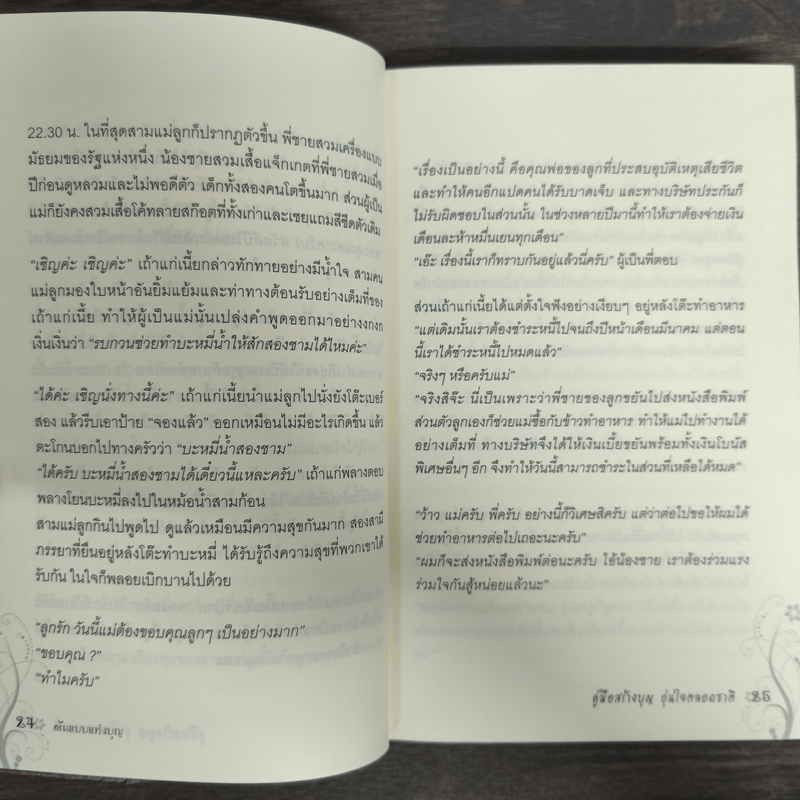 22.30 น. ในที่สุดสามแม่ลูกก็ปรากฏตัวขึ้น พี่ชายสวมเครื่องแบบ
มัธยมของรัฐแห่งหนึ่ง น้องชายสวมเสื้อแจ็กเกตที่พี่ชายสวมเมื่อ
ปีก่อนดูหลวมและไม่พอดีตัว เด็กทั้งสองคนโตขึ้นมาก ส่วนผู้เป็น
แม่ก็ยังคงสวมเสื้อโค้ทลายสก๊อตที่ทั้งเก่าและเชยแถมสีซีดตัวเดิม
“เชิญค่ะ เชิญค่ะ” เถ้าแก่เนี้ยกล่าวทักทายอย่างมีน้ำใจ สามคน
แม่ลูกมองใบหน้าอันยิ้มแย้มและท่าทางต้อนรับอย่างเต็มที่ของ
เถ้าแก่เนี้ย ทำให้ผู้เป็นแม่นั้นเปล่งคำพูดออกมาอย่างงกๆ
เงิ่นเงิ่นว่า “รบกวนช่วยทำบะหมี่น้ำให้สักสองชามได้ไหมค่ะ”
“ได้ค่ะ เชิญนั่งทางนี้ค่ะ” เถ้าแก่เนี้ยนำแม่ลูกไปนั่งยังโต๊ะเบอร์
สอง แล้วรีบเอาป้าย “จองแล้ว” ออกเหมือนไม่มีอะไรเกิดขึ้น แล้ว
ตะโกนบอกไปทางครัวว่า “บะหมี่น้ำสองชาม”
“ได้ครับ บะหมี่น้ำสองชามได้เดี๋ยวนี้แหละครับ” เถ้าแก่พลางตอบ
พลางโยนบะหมี่ลงไปในหม้อน้ำสามก้อน
สามแม่ลูกกินไปพูดไป ดูแล้วเหมือนมีความสุขกันมาก สองสามี
ภรรยาที่ยืนอยู่หลังโต๊ะทำบะหมี่ ได้รับรู้ถึงความสุขที่พวกเขาได้
รับกัน ในใจก็พลอยเบิกบานไปด้วย
“ลูกรัก วันนี้แม่ต้องขอบคุณลูกๆ เป็นอย่างมาก”
“ขอบคุณ ?”
“ทำไมครับ”
24 ต้นแบบแห่งบุญ
“เรื่องเป็นอย่างนี้ คือคุณพ่อของลูกที่ประสบอุบัติเหตุเสียชีวิต
และทำให้คนอีกแปดคนได้รับบาดเจ็บ และทางบริษัทประกันก็
ไม่รับผิดชอบในส่วนนั้น ในช่วงหลายปีมานี้ทำให้เราต้องจ่ายเงิน
เดือนละห้าหมื่นเยนทุกเดือน”
“เอ๊ะ เรื่องนี้เราก็ทราบกันอยู่แล้วนี่ครับ” ผู้เป็นพี่ตอบ
ส่วนเถ้าแก่เนี้ยได้แต่ตั้งใจฟังอย่างเงียบๆ อยู่หลังโต๊ะทำอาหาร
“แต่เดิมนั้นเราต้องชำระหนี้ไปจนถึงปีหน้าเดือนมีนาคม แต่ตอน
นี้เราได้ชำระหนี้ไปหมดแล้ว”
“จริงๆ หรือครับแม่”
“จริงสิจ๊ะ นี่เป็นเพราะว่าพี่ชายของลูกขยันไปส่งหนังสือพิมพ์
ส่วนตัวลูกเองก็ช่วยแม่ซื้อกับข้าวทำอาหาร ทำให้แม่ไปทำงานได้
อย่างเต็มที่ ทางบริษัทจึงได้ให้เงินเบี้ยขยันพร้อมทั้งเงินโบนัส
พิเศษอื่นๆ อีก จึงทำให้วันนี้สามารถชำระในส่วนที่เหลือได้หมด”
“ว้าว แม่ครับ พี่ครับ อย่างนี้ก็วิเศษสิครับ แต่ว่าต่อไปขอให้ผมได้
ช่วยทำอาหารต่อไปเถอะนะครับ”
“ผมก็จะส่งหนังสือพิมพ์ต่อนะครับ ไอ้น้องชาย เราต้องร่วมแรง
ร่วมใจกันสู้หน่อยแล้วนะ”
คู่มือสร้างบุญ อุ่นใจตลอดชาติ 25